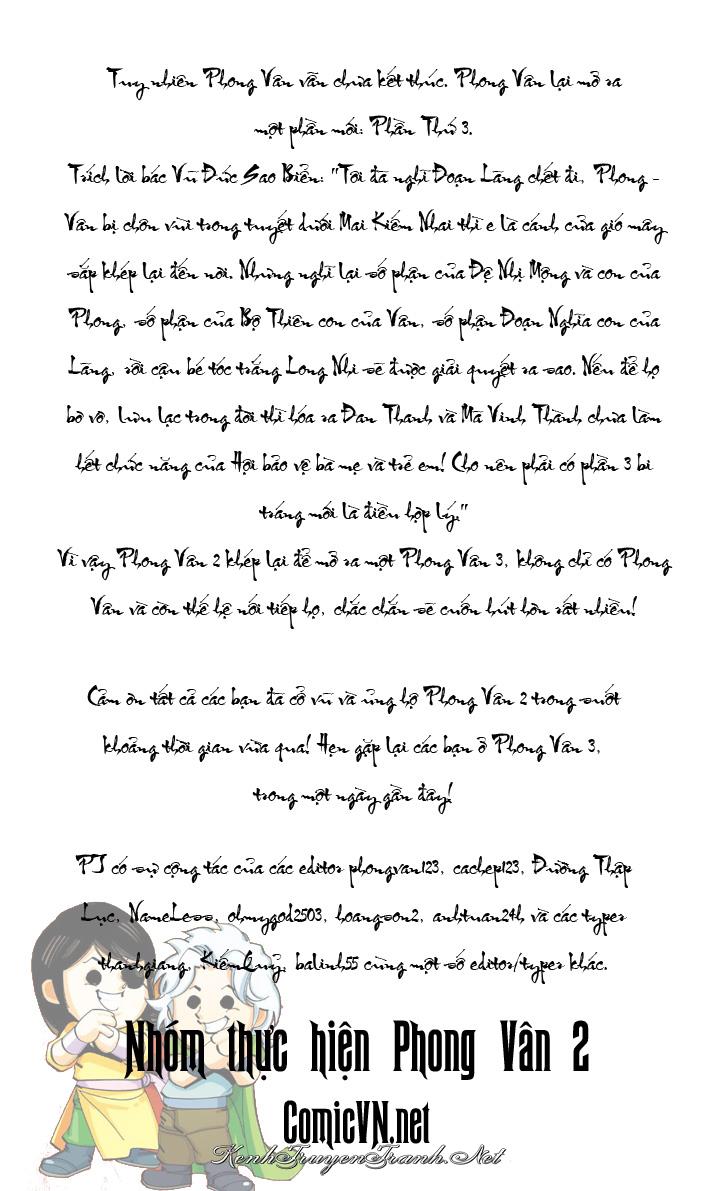 Tuy nhiên Phong Vân vẫn chưa kết thúc. Phong Vân lại mở ra
một phần mới: Phần Thứ 3.
Trích lời bác Vũ Đức Sao Biển: "Tôi đã nghĩ Đoạn Lãng chết đi, Phong -
Vân bị chôn vùi trong tuyết dưới Mai Kiếm Nhai thì e là cánh cửa gió mây
sắp khép lại đến nơi. Nhưng nghĩ lại số phận của Đệ Nhị Mộng và con của
Phong, số phận của Bộ Thiên con của Vân, số phận Đoạn Nghĩa con của
Lãng, rồi cậu bé tóc trắng Long Nhi sẽ được giải quyết ra sao. Nếu để họ
bơ vơ, lưu lạc trong đời thì hóa ra Đan Thanh và Mã Vinh Thành chưa làm
hết chức năng của Hội bảo vệ bà mẹ và trẻ em! Cho nên phải có phần 3 bi
tráng mới là điều hợp lý."
Vì vậy Phong Vân 2 khép lại để mở ra một Phong Vân 3, không chỉ có Phong
Vân và còn thế hệ nối tiếp họ, chắc chắn sẽ cuốn hút hơn rất nhiều!
Cảm ơn tất cả các bạn đã cổ vũ và ủng hộ Phong Vân 2 trong suốt
khoảng thời gian vừa qua! Hẹn gặp lại các bạn ở Phong Vân 3,
trong một ngày gần đây!
PJ có sự cộng tác của các editor phongvan123, cachep123, Đường Thập
Lục, NameLess, ohmygod2503, hoangson2, anhtuan24h và các typer
thanhgiang, KiếmQuỷ, balinh55 cùng một số editor/typer khác.
Nhóm thực hiện Phong Vân 2
ComicVN.net
KenhTruyenTranh.Net